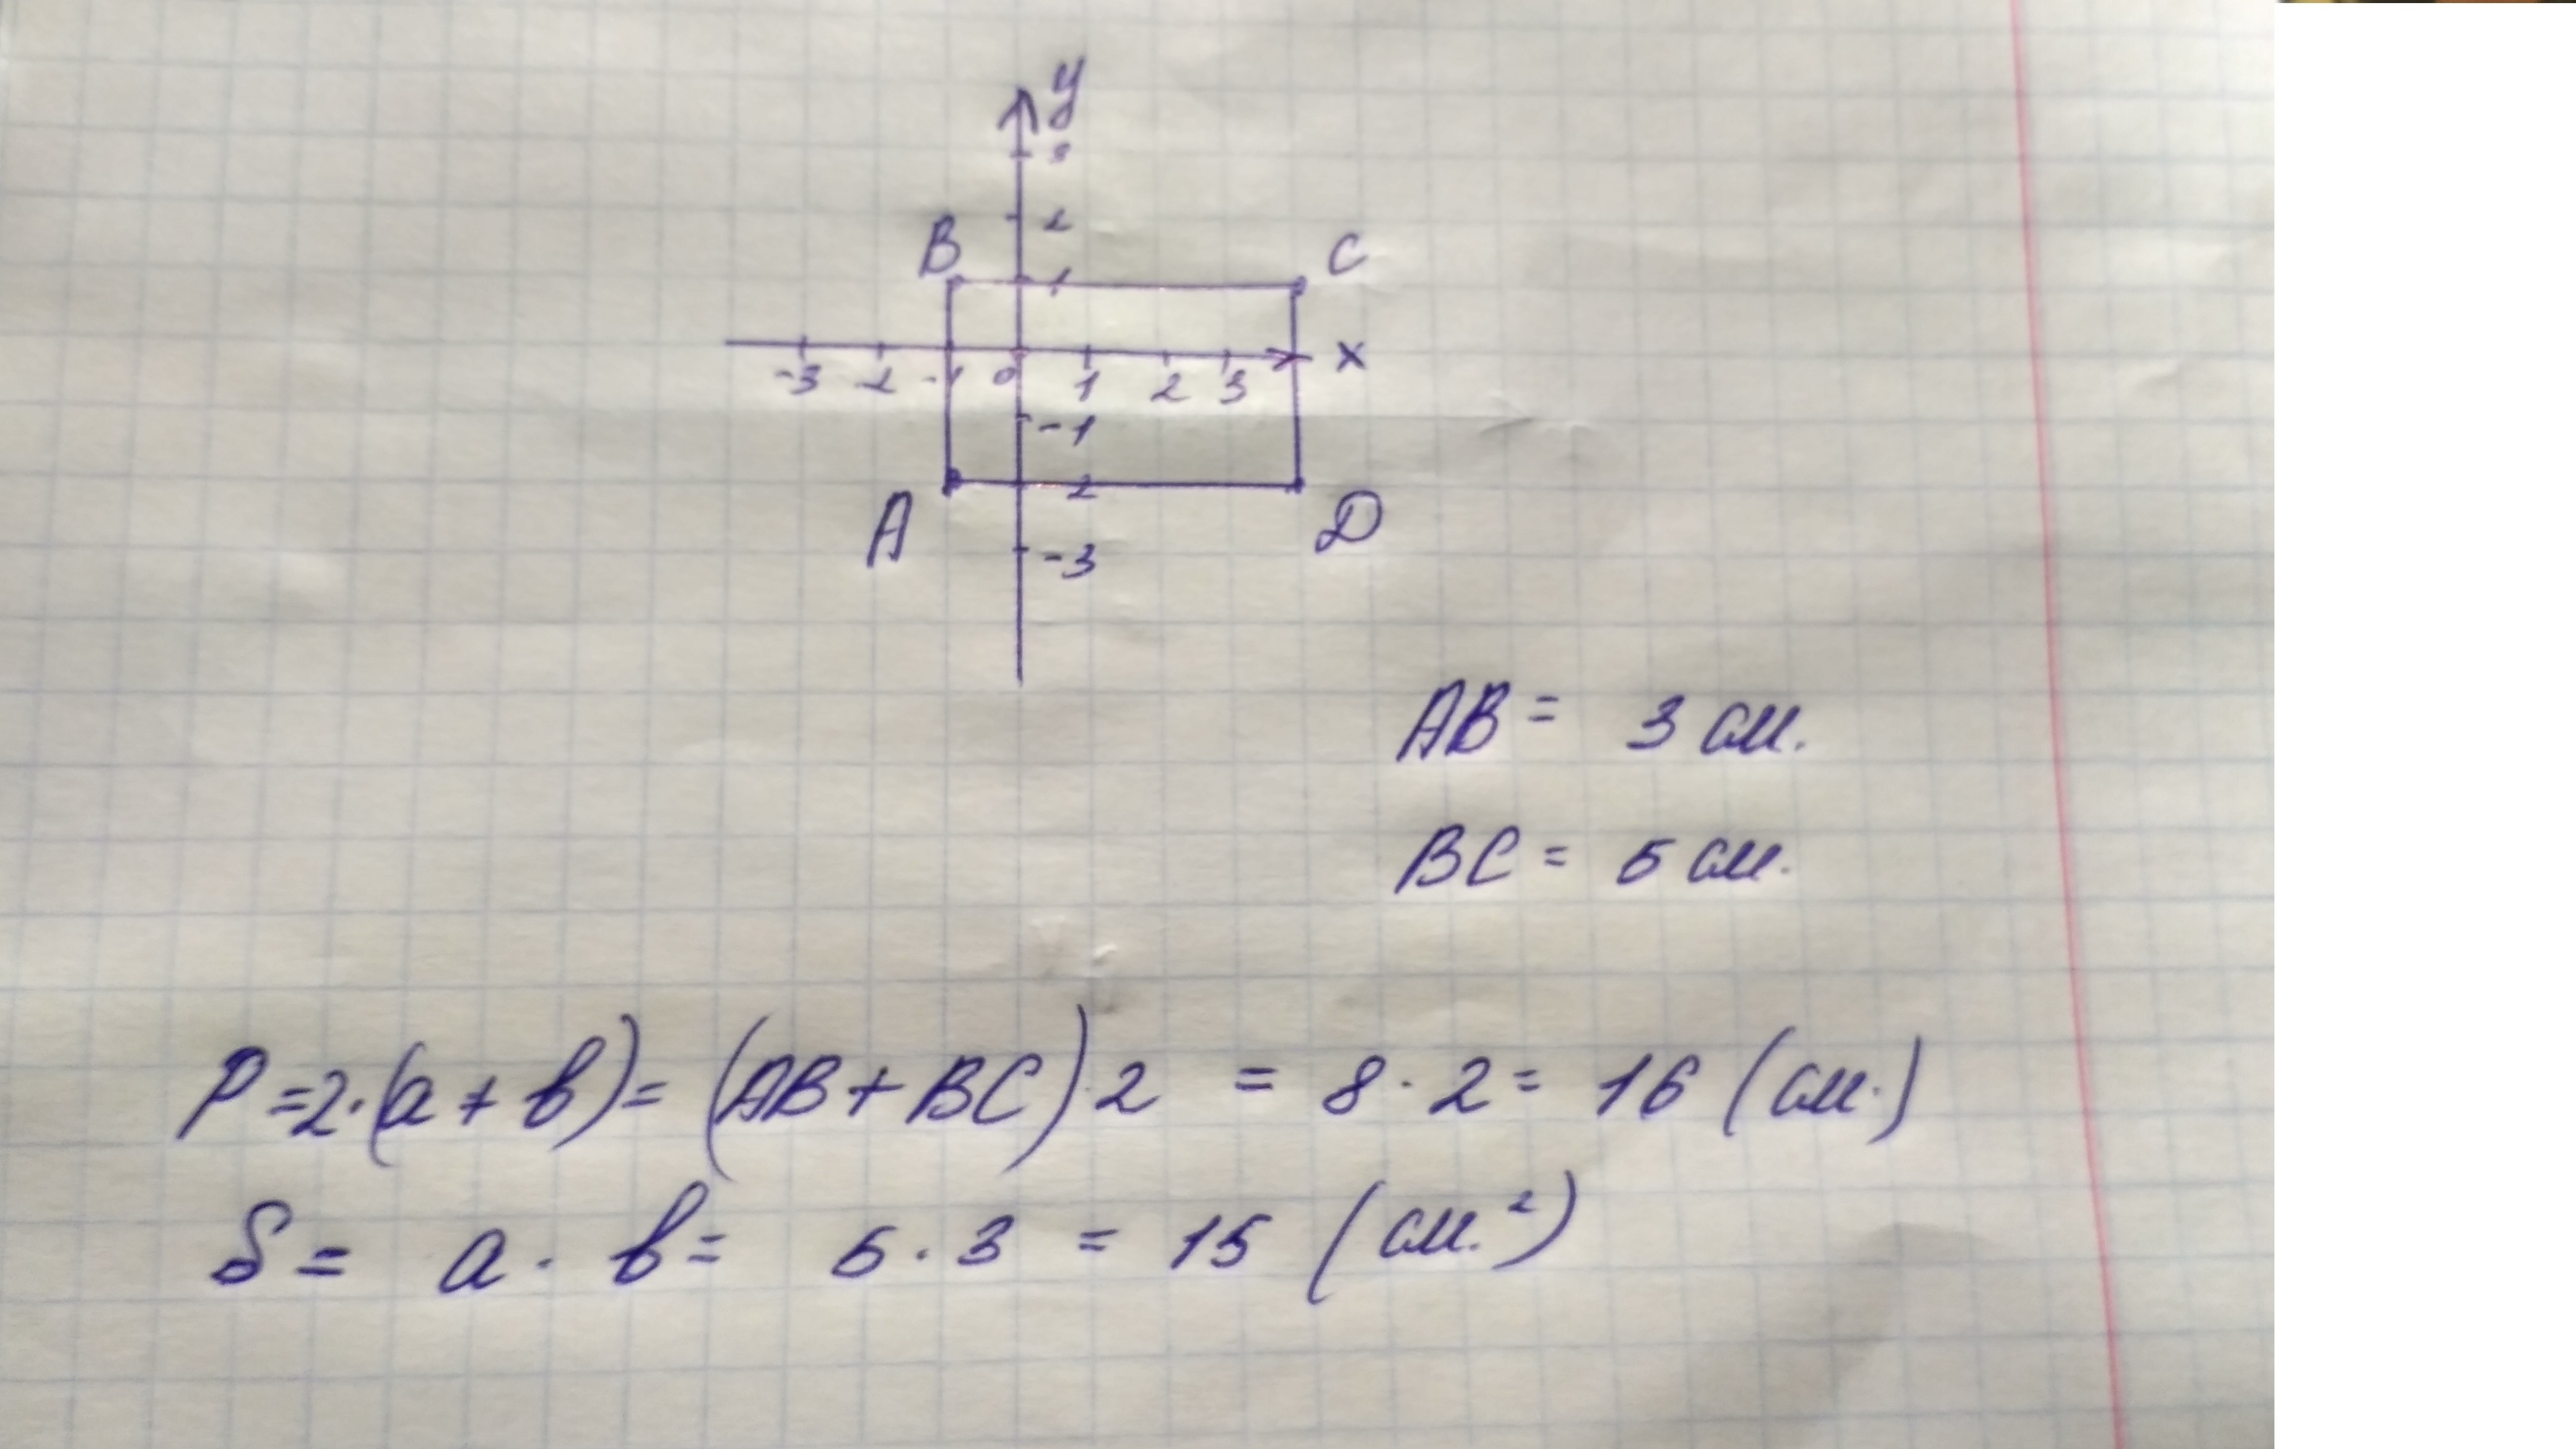 y
3
2
B C
1
-3 -2 -1 0 1 2 3 x
-1
2
A D
-3
AB = 3 см.
BC = 5 см.
P=2·(a + b)= (AB+BC)·2 = 8·2= 16 (см.)
S= a · b= 5·3 = 15 (см.²)